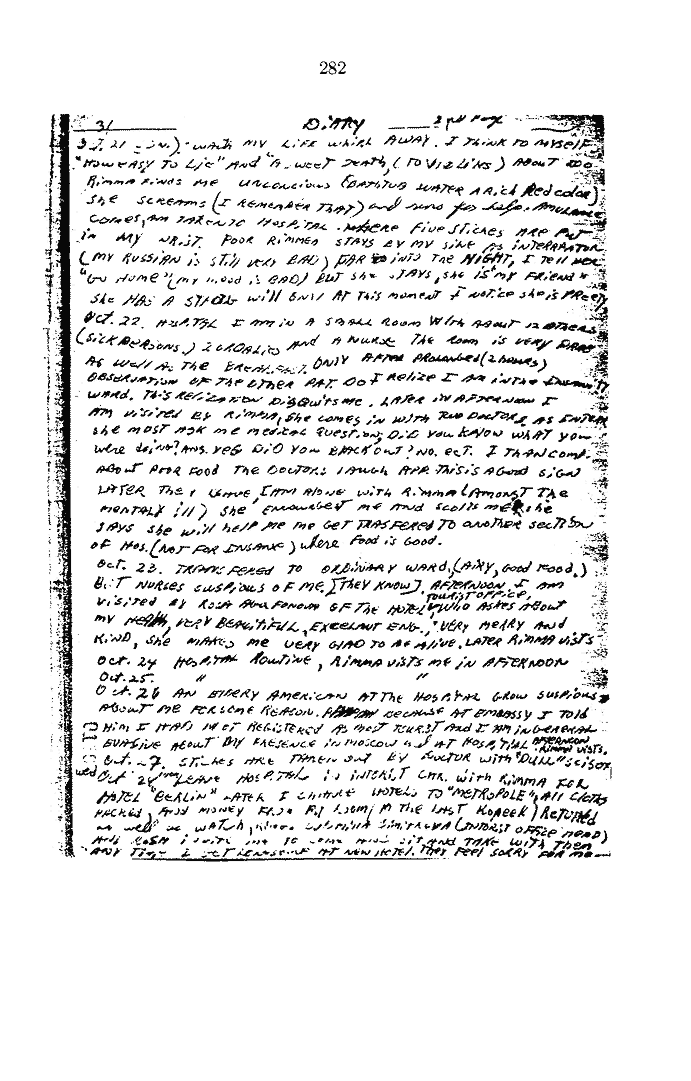 282
DIARY
Oct. 21 watch my life whirl away. I think to myself
"How easy to die" and "a sweet death, (to violins) about
Rimma finds me unconcious (bathtub water a rich red color)
she screams (I remember that) and runs for help. Amulance
comes, am taken to hospital where five stiches are put
in my wrist. Poor Rimmea stays by my side as interrpator
(my Russian is still very bad) far into the night, I tell her
"Go home" (my mood is bad) but she stays, she is "my friend"
She has a strong will only at this moment I notice she is preety
Oct. 22. Hospital I am in a small room with about 12 others
(sick persons.) 2 ordalies and a nurse the room is very drab
as well as the breakfast. Only after prolonged (2 hours)
observation of the other pat. do I relize I am in the Insanity
ward. This relization disquits me. Later in afternoon I
am visited by Rimma, she comes in with two doctors, as interr
she must ask me medical question; Did you know what you
were doing? Ans. yes Did you blackout? No. ect. I than comp.
about poor food the doctors laugh app. this is a good sign
Later they leave, I am alone with Rimma (amongst the
mentaly ill) she encourgest me and scolds me. she
says she will help me me get trasfered to another section
of hos. (not for insane) where food is good.
Oct. 23. Transfered to ordinary ward, (airy, good food.)
but nurses suspious of me. [they know]. Afternoon. I am
visited by Rosa Agafonova of the hotel tourist office, who askes about
my health, very beautiful, excelant Eng., very merry and
kind, she makes me very glad to be alive. Later Rimma vists
Oct. 24 Hospital routine, Rimma vists me in afternoon
Oct. 25. " "
Oct. 26 An elderly American at the hospital grow suspious
about me for some reason. because at Embassy I told
him I had not registered as most tourist and I am in general
evasive about my presence in Moscow and at hospital afternoon Rimma vists.
Oct. 27. stiches are taken out by doctor with "dull" scisor
wed Oct 28 leave hospital in Interist car with Rimma for
Hotel "Berlin" later I change hotels to "Metropole", all cloths
packed, and money from my room (to the last kopeek) returned
as well as watch, (Intrist office head)
and Rosa invite me to come and sit and take with them
any time I get lonesome at new hotel. They feel sorry for me